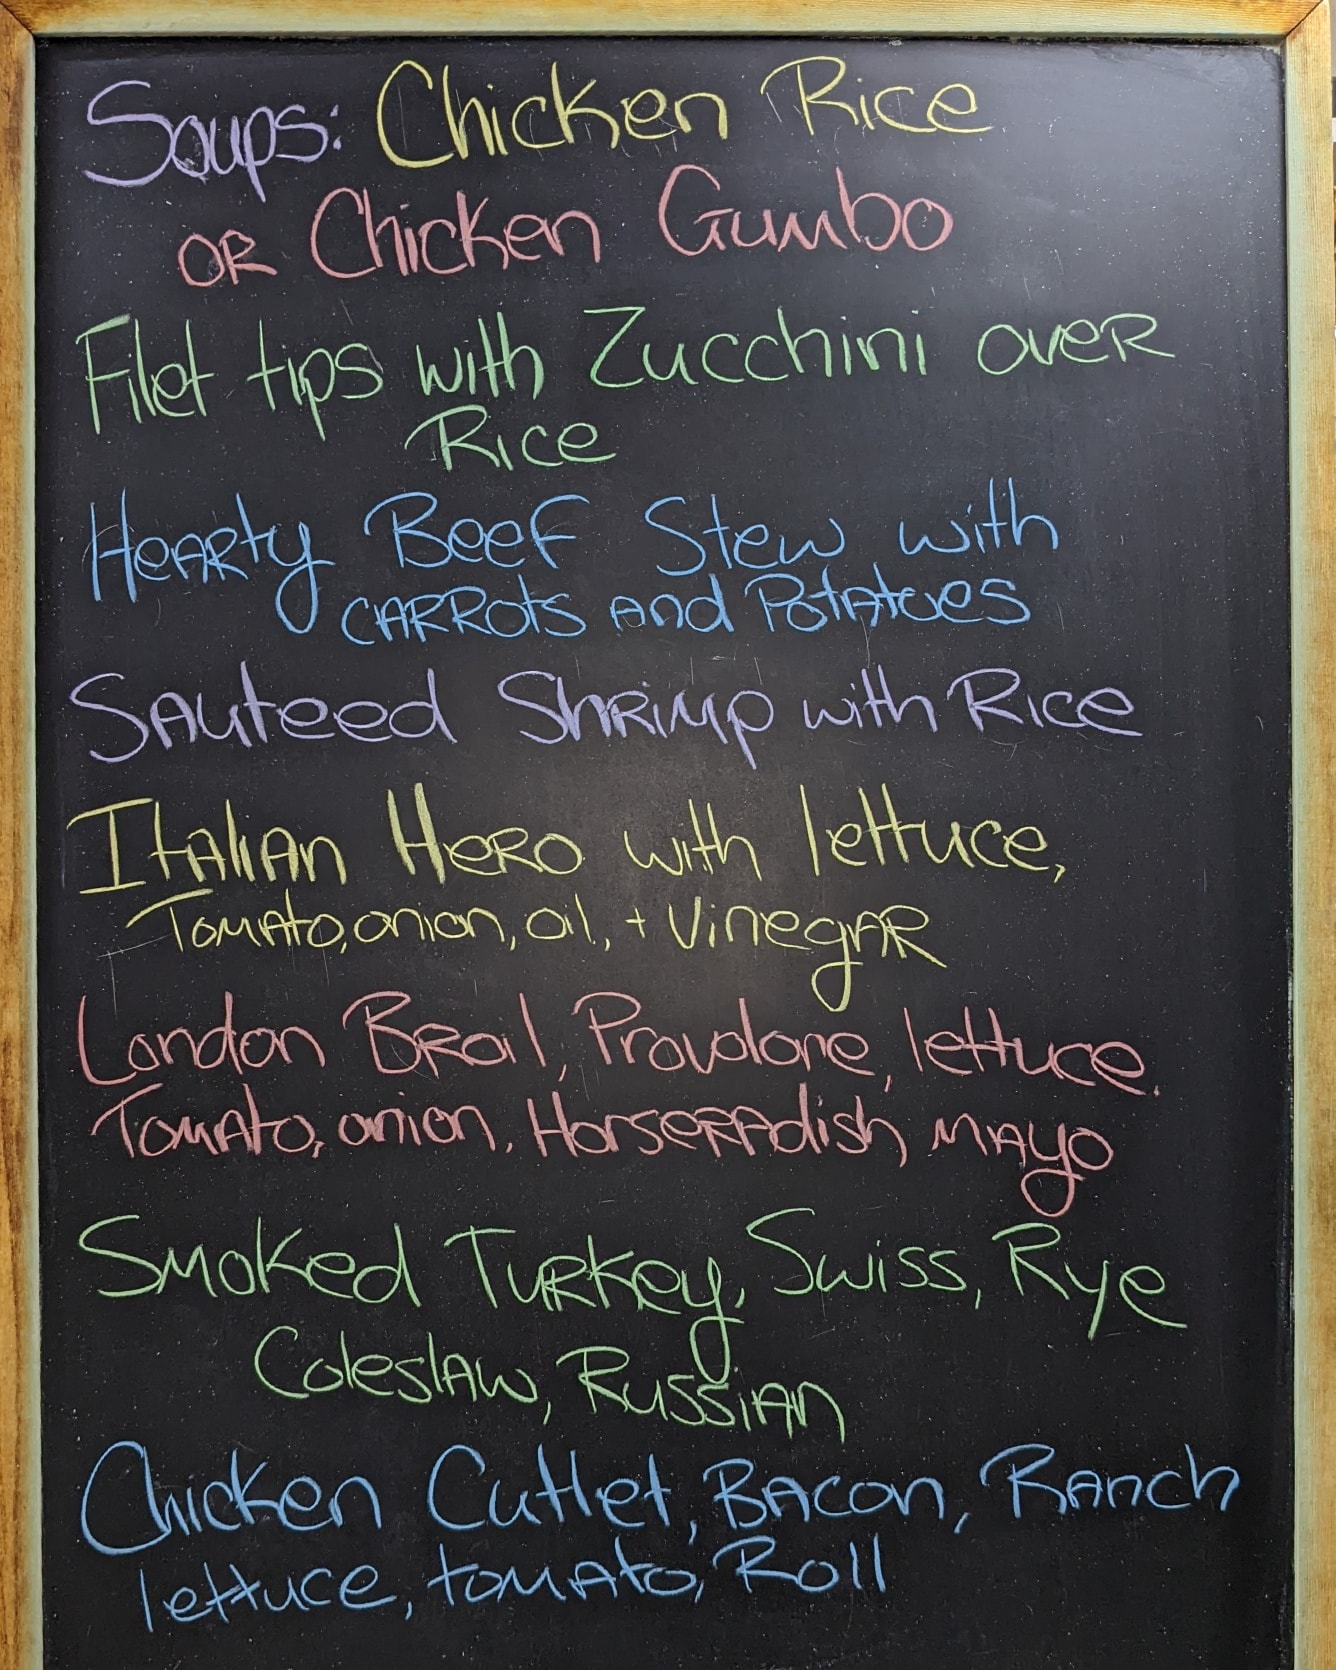 Soups: Chicken Rice
OR Chicken Gumbo
Filet tips with Zucchini over
Rice
Hearty Beef Stew with
carrots and Potatoes
Sauteed Shrimp with Rice
Italian Hero with lettuce,
Tomato, onion, oil, + Vinegar
London Broil, Provolone, lettuce,
Tomato, onion, Horseradish, mayo
Smoked Turkey, Swiss, Rye
Coleslaw, Russian
Chicken Cutlet, Bacon, Ranch
lettuce, tomato, Roll